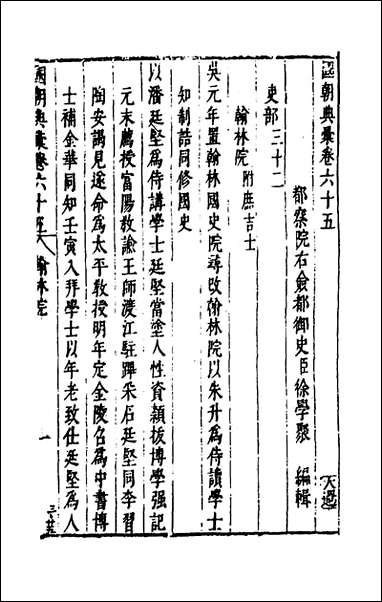 國朝典彙卷六十五
都察院右僉都御史臣徐學聚 編輯
吏部三十二
翰林院 附庶吉士
吳元年置翰林國史院尋改翰林院以朱升爲侍講學士
知制誥同修國史
以潘廷堅爲侍講學士廷堅當塗人性資穎拔博學强記
元末薦授富陽教諭王師渡江駐蹕采石廷堅同李習
陶安謁見遂命爲太平教授明年定金陵召爲中書博
士補金華同知壬寅入拜學士以年老致仕廷堅爲人
國朝典彙卷六十五 翰林院
一